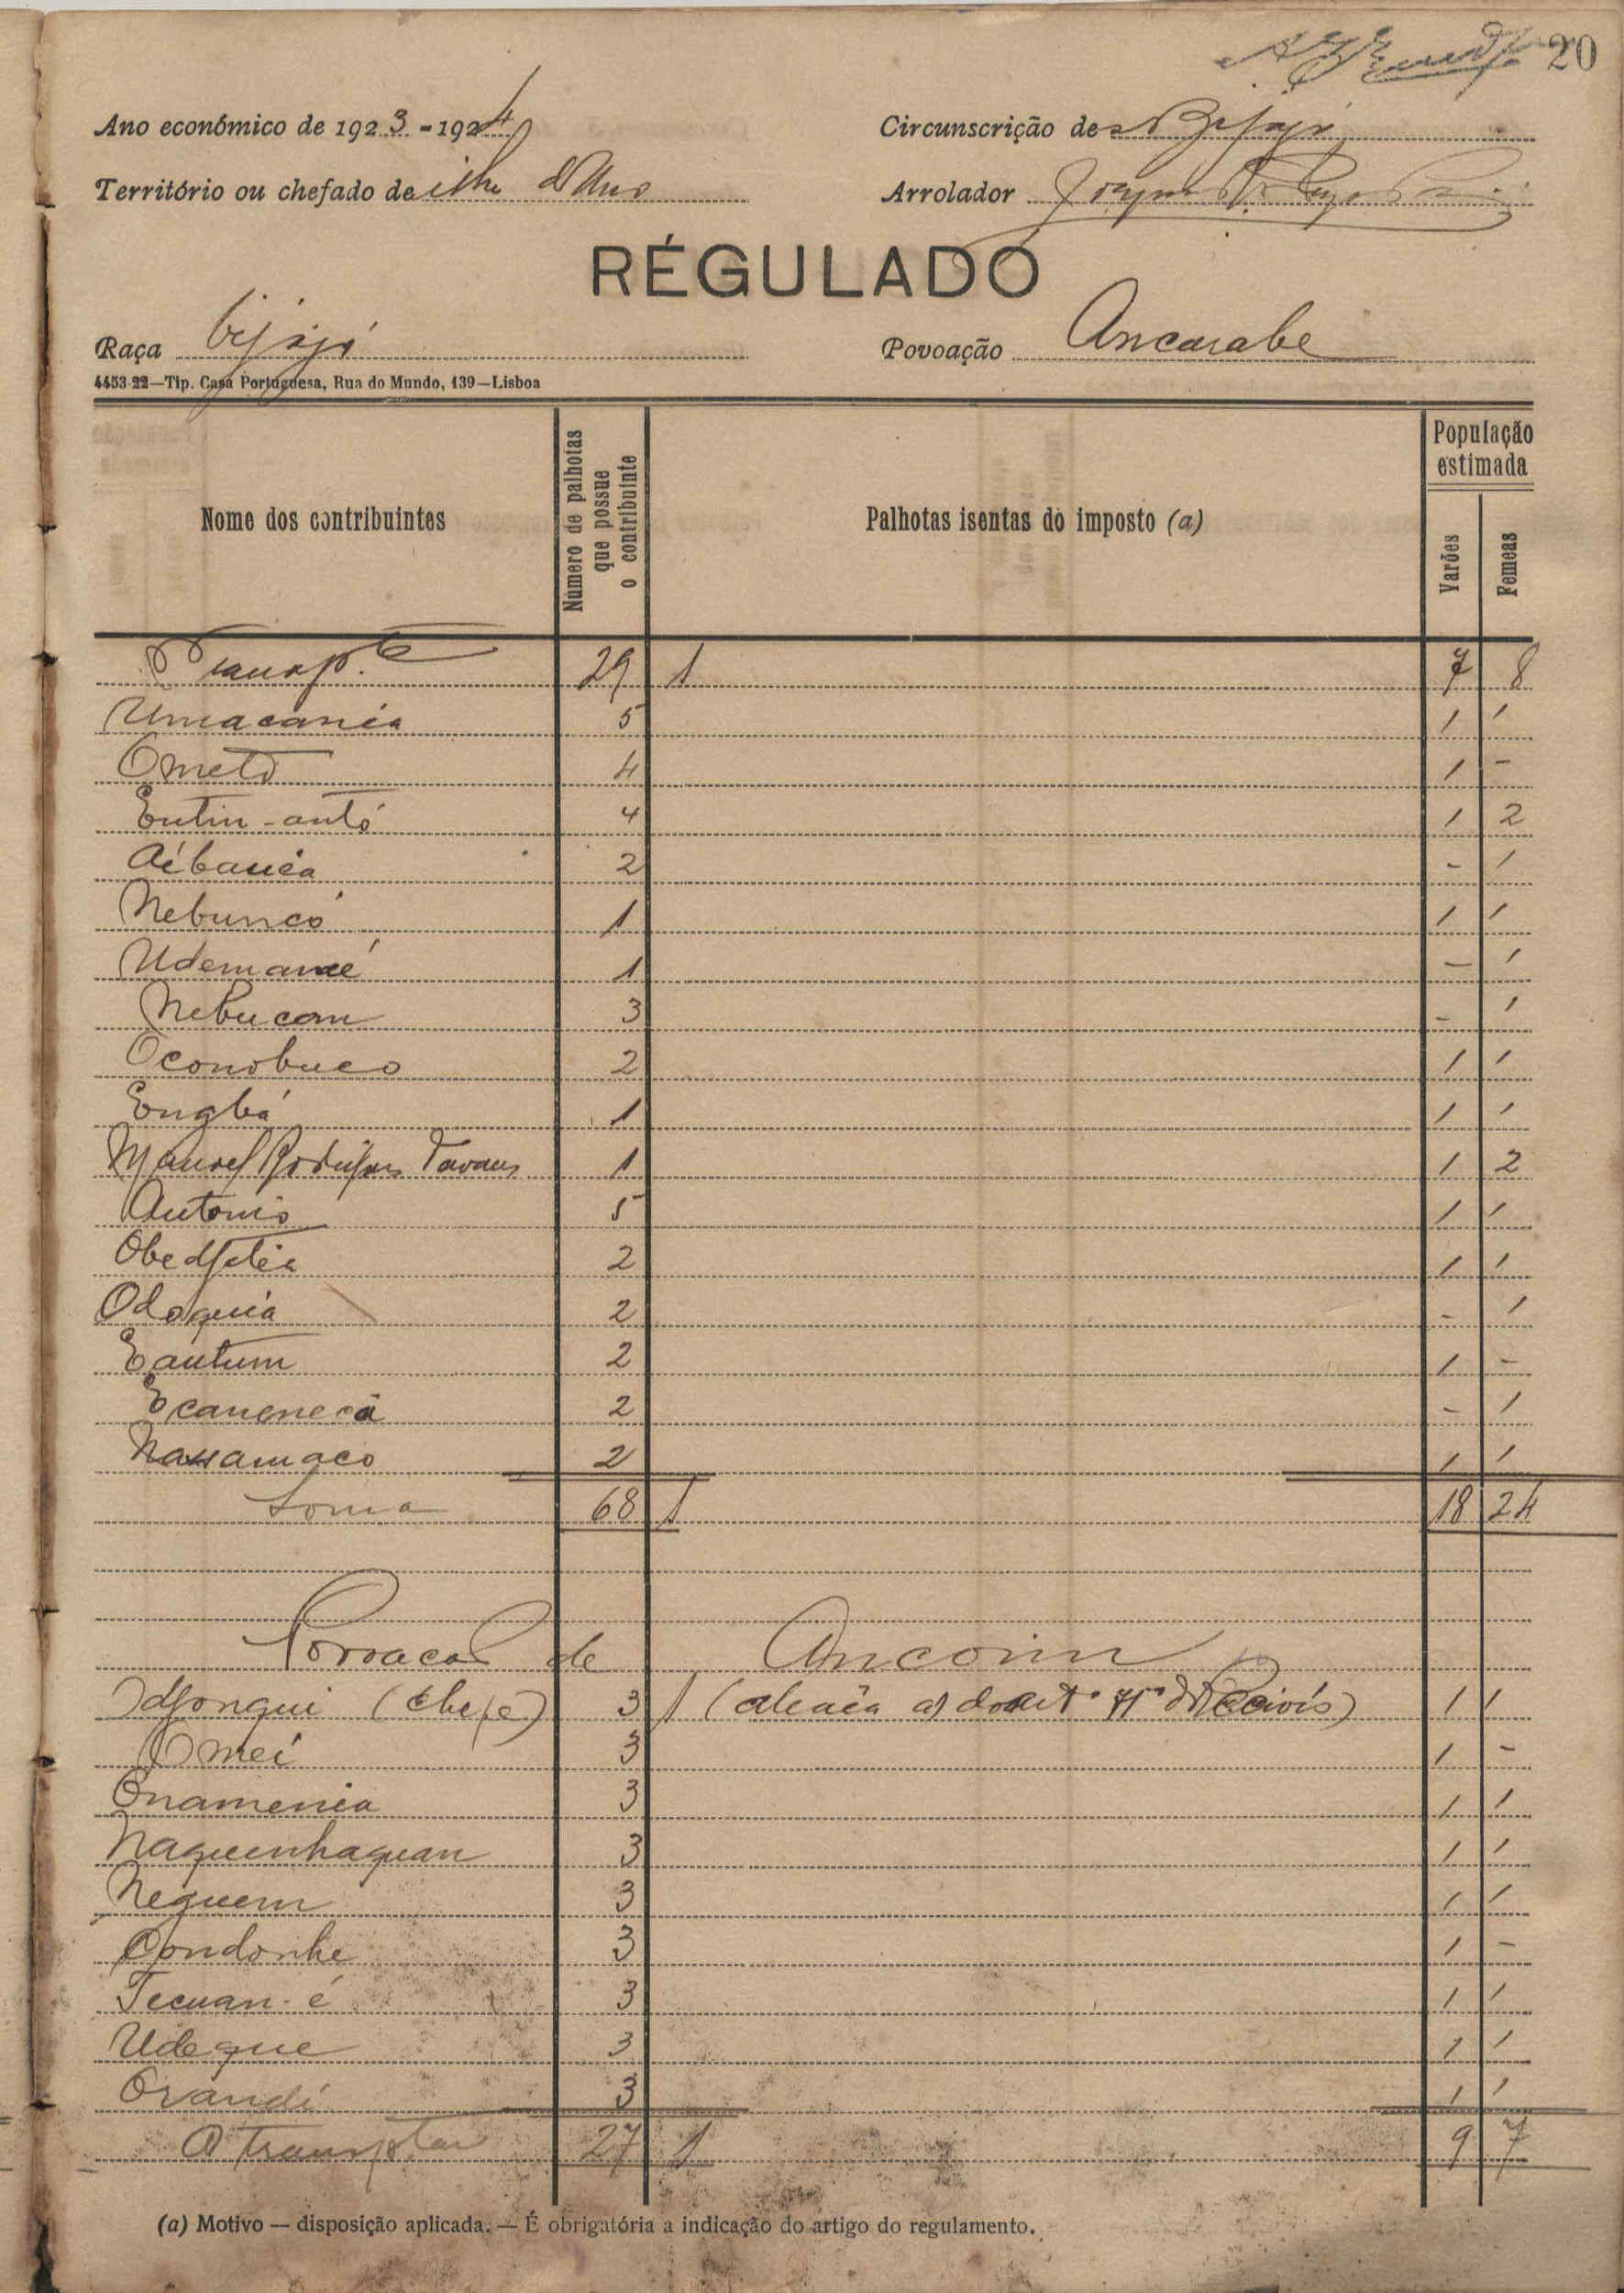 20
Ano económico de 1923-1924 Circunscrição de Bijagó
Território ou chefado de ilha d'Uno Arrolador
RÉGULADO
Raça bijagó Povoação Ancarabe
4453-22—Tip. Casa Portuguesa, Rua do Mundo, 139—Lisboa
Nome dos contribuintes Número de palhotas que possue o contribuinte Palhotas isentas do imposto (a) População estimada Varões Femeas
Transpte 29 1 7 8
Umacania 5 1 1
Ometó 4 1 -
Entin-antó 4 1 2
2 - 1
Nebuncó 1 1 1
1 - 1
Nebucom 3 - 1
Oconobuco 2 1 1
Engbá 1 1 1
Manoel Rodrigues Tavares 1 1 2
Antonio 5 1 1
2 1 1
Odoquia 2 - 1
Eantum 2 1 -
Ecaneneca 2 - 1
Nassamaco 2 1 1
Soma 68 1 18 24
Povoação de Anconin
Idjongui (chefe) 3 1 1 1
Omei 3 1 -
Onamenia 3 1 1
Naquenhaquan 3 1 1
Neguem 3 1 1
Condonhe 3 1 -
Tecuan-é 3 1 1
Udeque 3 1 1
Orandi 3 1 1
A transptar 27 1 9 7
(a) Motivo — disposição aplicada. — É obrigatória a indicação do artigo do regulamento.